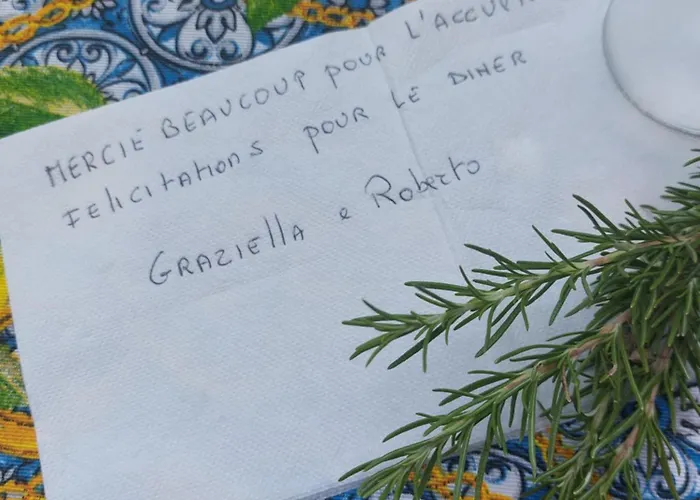 MERCIE BEAUCOUP POUR L'ACCUPI
FELICITATIONS POUR LE DINER
GRAZIELLA e Roberto